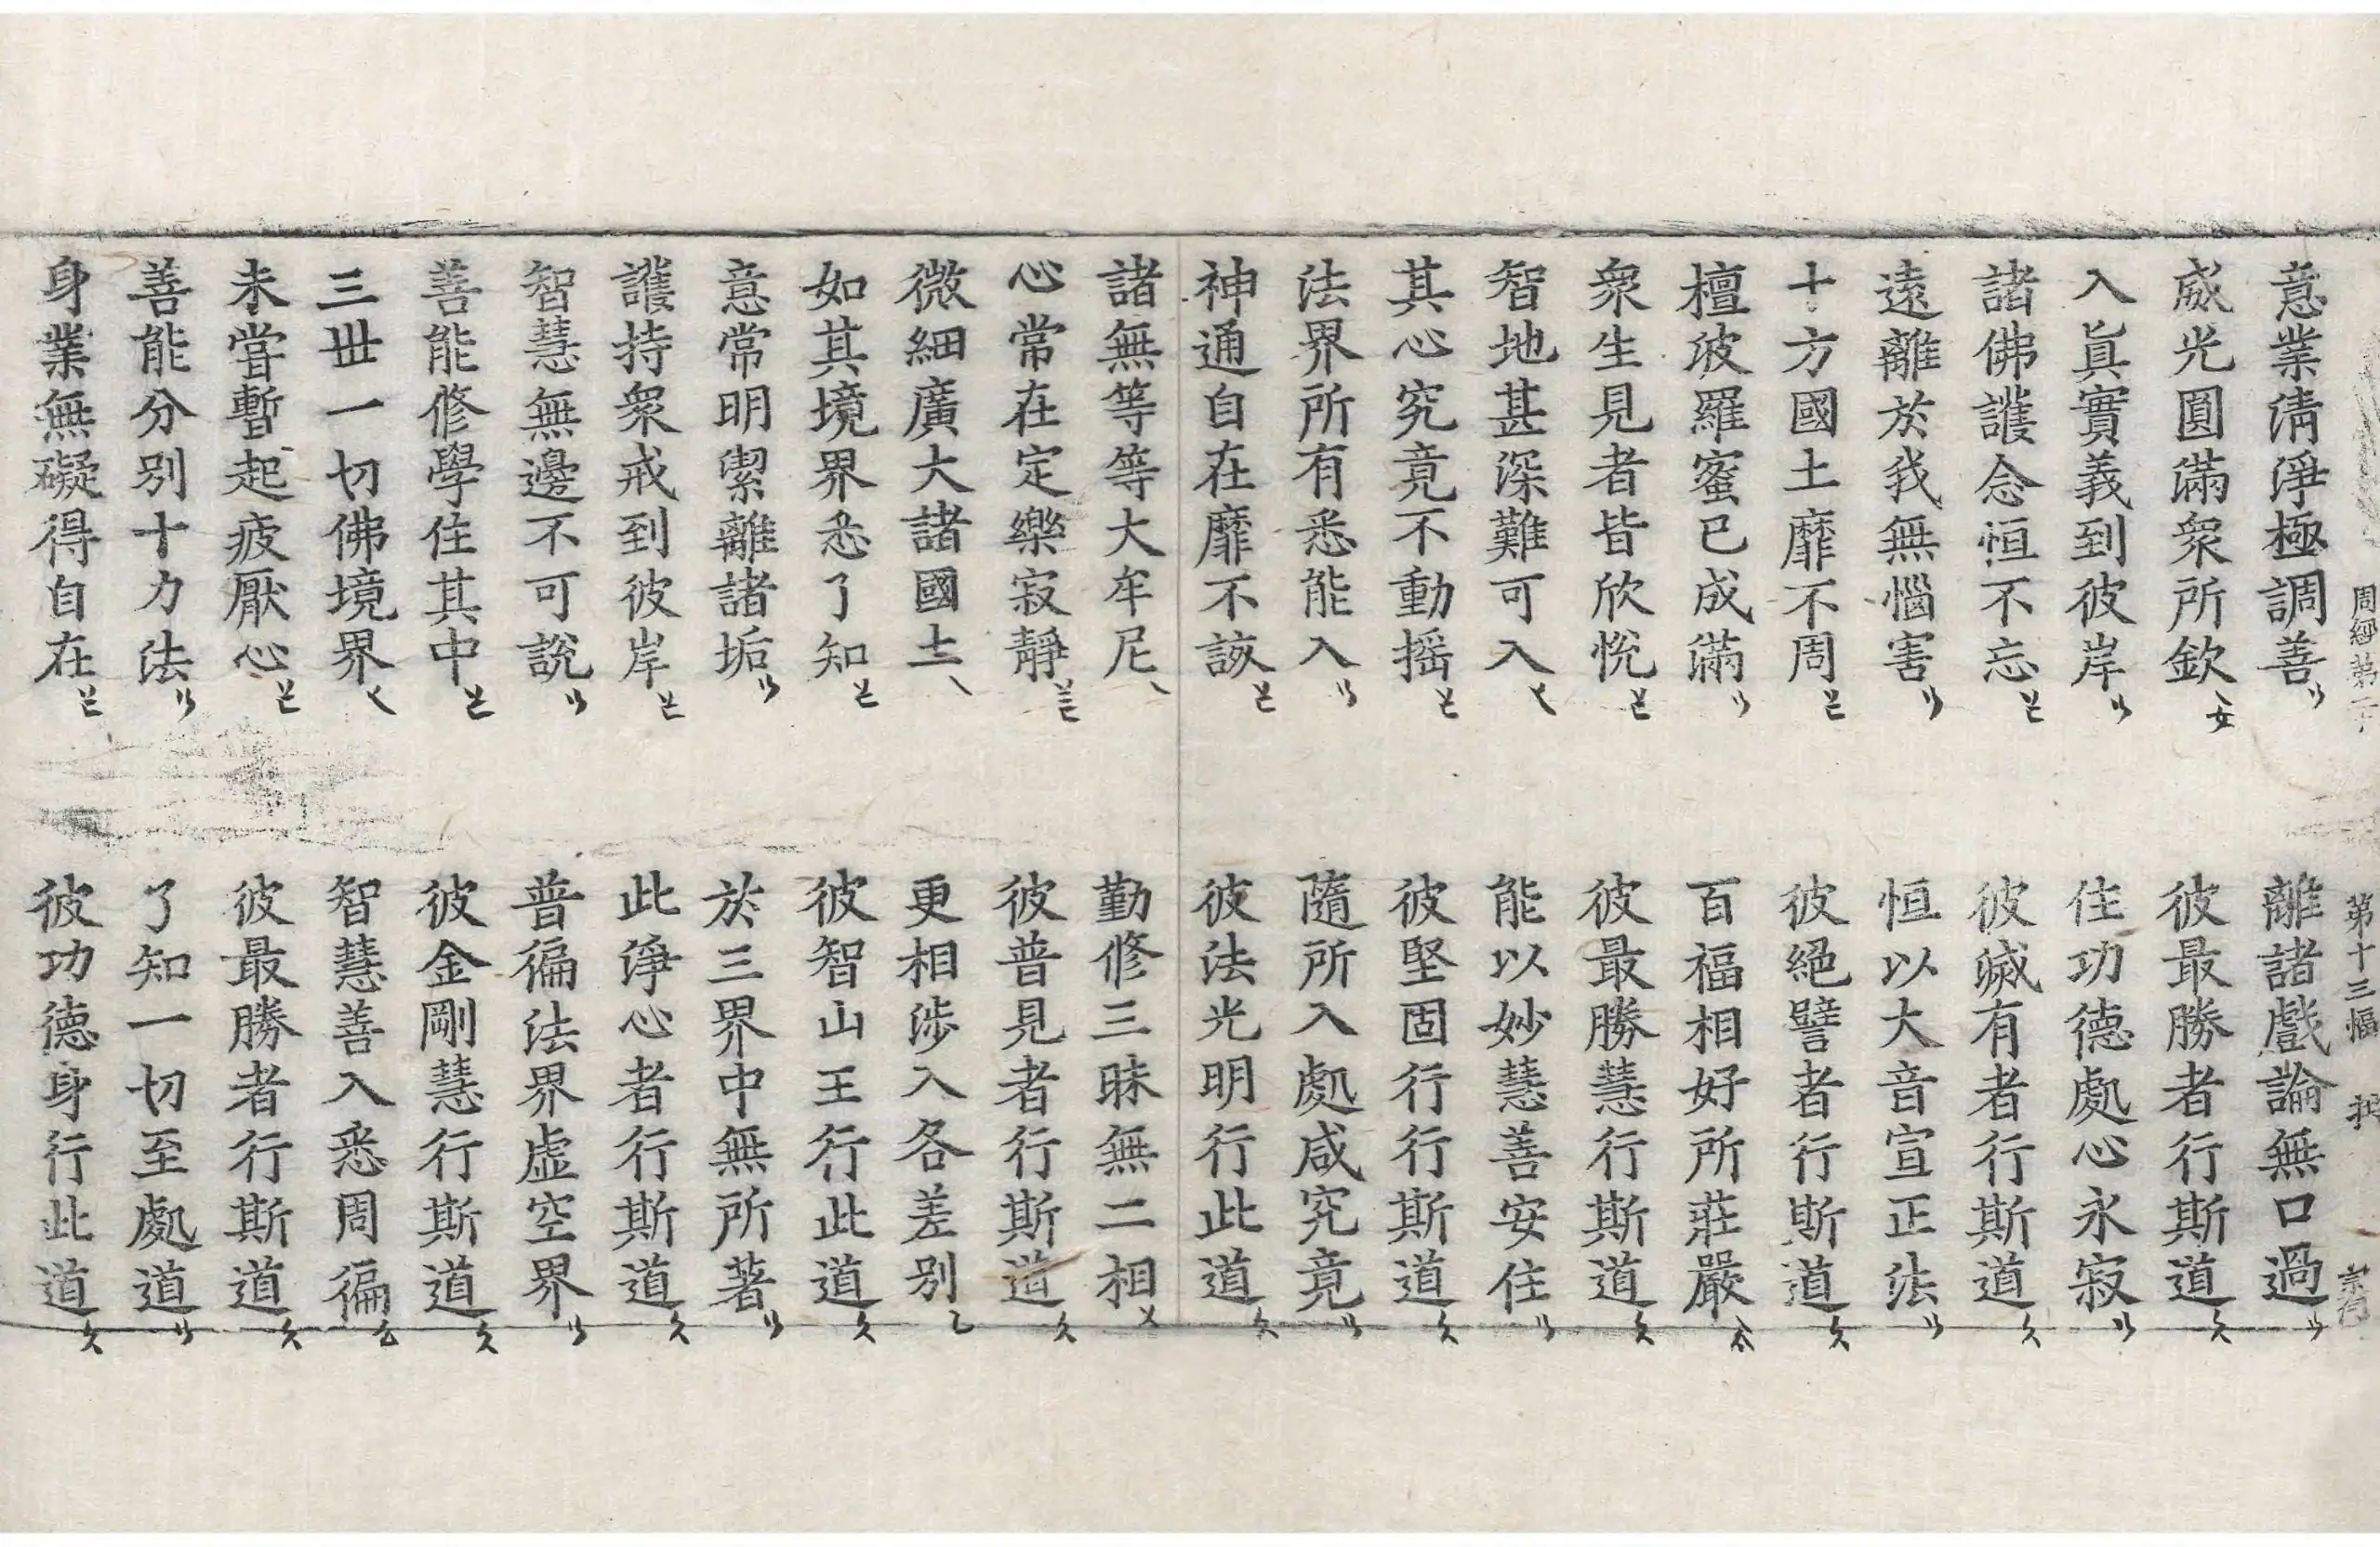 周經第二十 第十三幅
意業清淨極調善 離諸戲論無口過
威光圓滿衆所欽 彼最勝者行斯道
入眞實義到彼岸 住功德處心永寂
諸佛護念恒不忘 彼滅有者行斯道
遠離於我無惱害 恒以大音宣正法
十方國土靡不周 彼絕譬者行斯道
檀波羅蜜已成滿 百福相好所莊嚴
衆生見者皆欣悅 彼最勝慧行斯道
智地甚深難可入 能以妙慧善安住
其心究竟不動搖 彼堅固行行斯道
法界所有悉能入 隨所入處咸究竟
神通自在靡不該 彼法光明行此道
諸無等等大牟尼 勤修三昧無二相
心常在定樂寂靜 彼普見者行斯道
微細廣大諸國土 更相涉入各差別
如其境界悉了知 彼智山王行此道
意常明潔離諸垢 於三界中無所著
護持衆戒到彼岸 此淨心者行斯道
智慧無邊不可說 普徧法界虛空界
善能修學住其中 彼金剛慧行斯道
三世一切佛境界 智慧善入悉周徧
未甞暫起疲厭心 彼最勝者行斯道
善能分別十力法 了知一切至處道
身業無礙得自在 彼功德身行此道